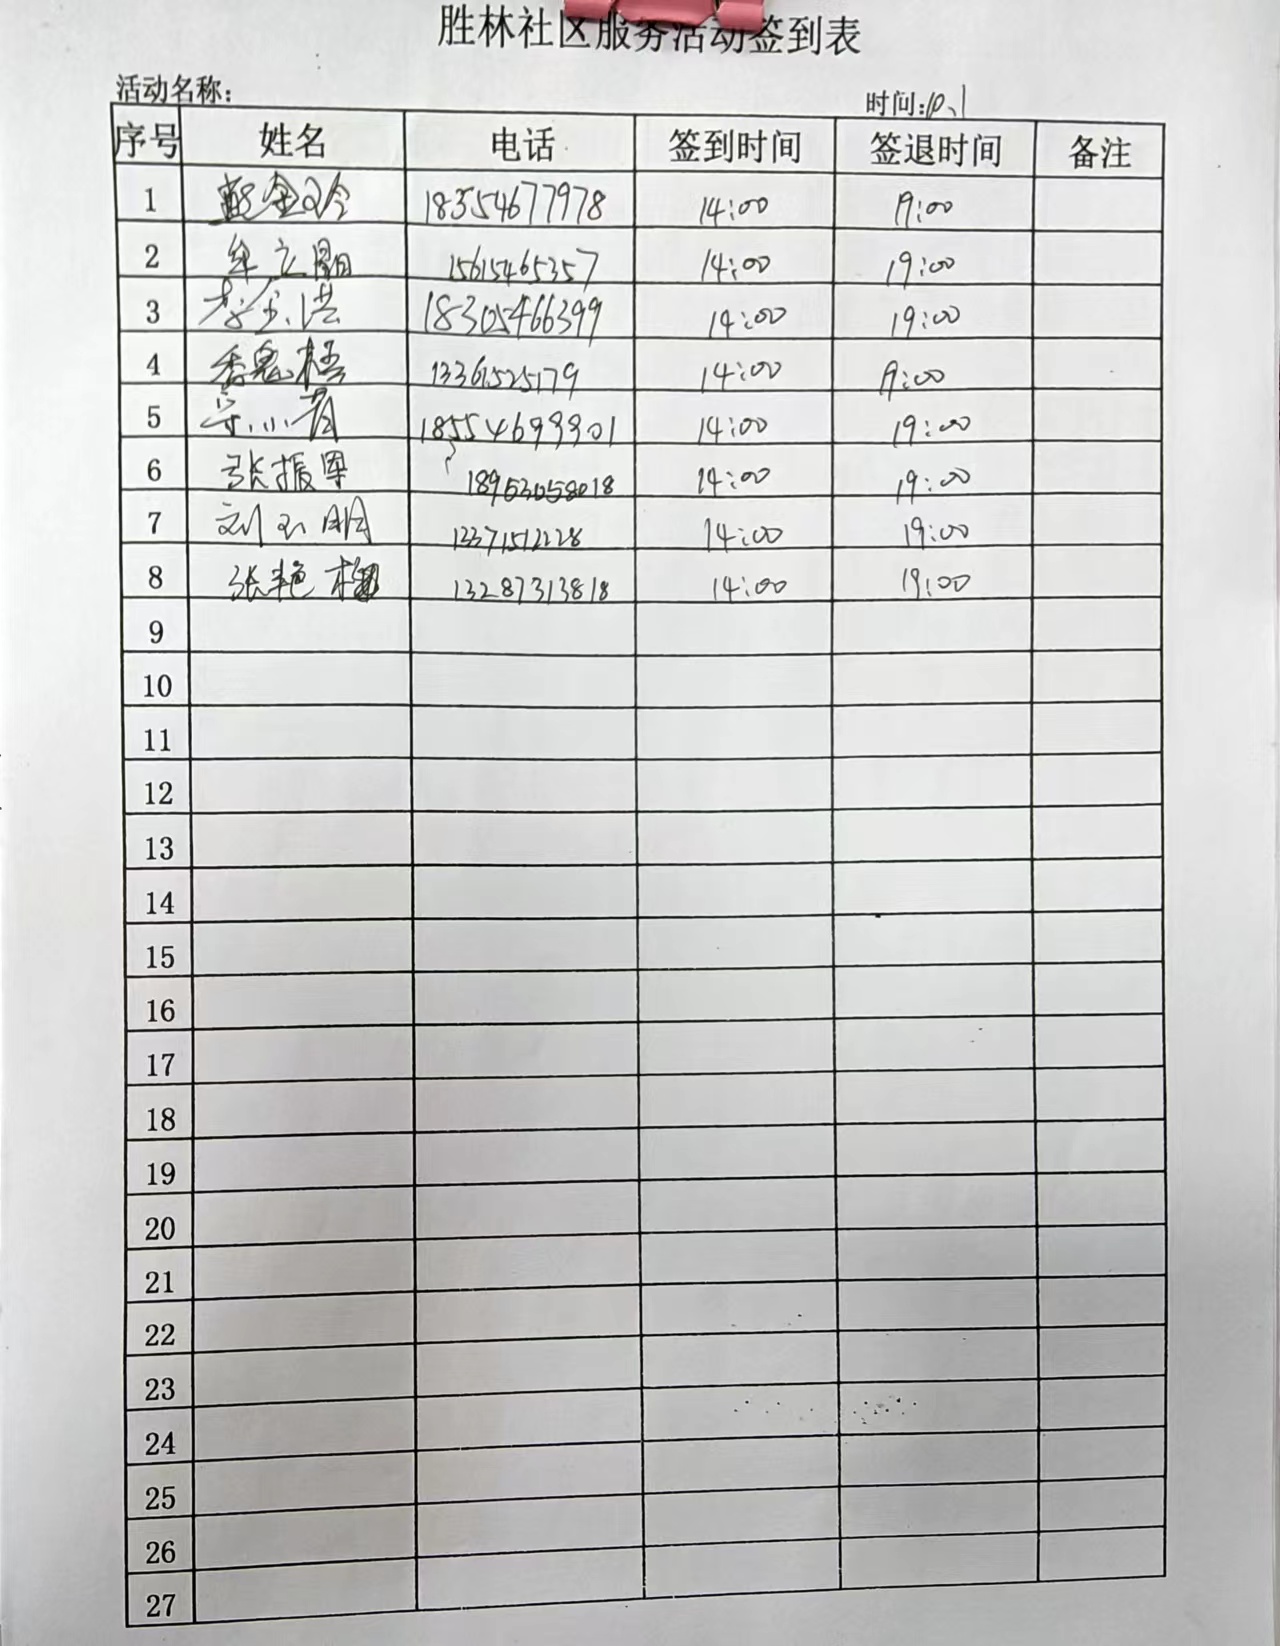 胜林社区服务活动签到表
活动名称：
时间：10、1
序号 姓名 电话 签到时间 签退时间 备注
1 18354677978 14:00 19:00
2 15615465357 14:00 19:00
3 李金洪 18305466399 14:00 19:00
4 13361525179 14:00 19:00
5 宋小霞 14:00 19:00
6 张振军 14:00 19:00
7 刘玉明 13371512228 14:00 19:00
8 张艳梅 13287313818 14:00 19:00
9
10
11
12
13
14
15
16
17
18
19
20
21
22
23
24
25
26
27